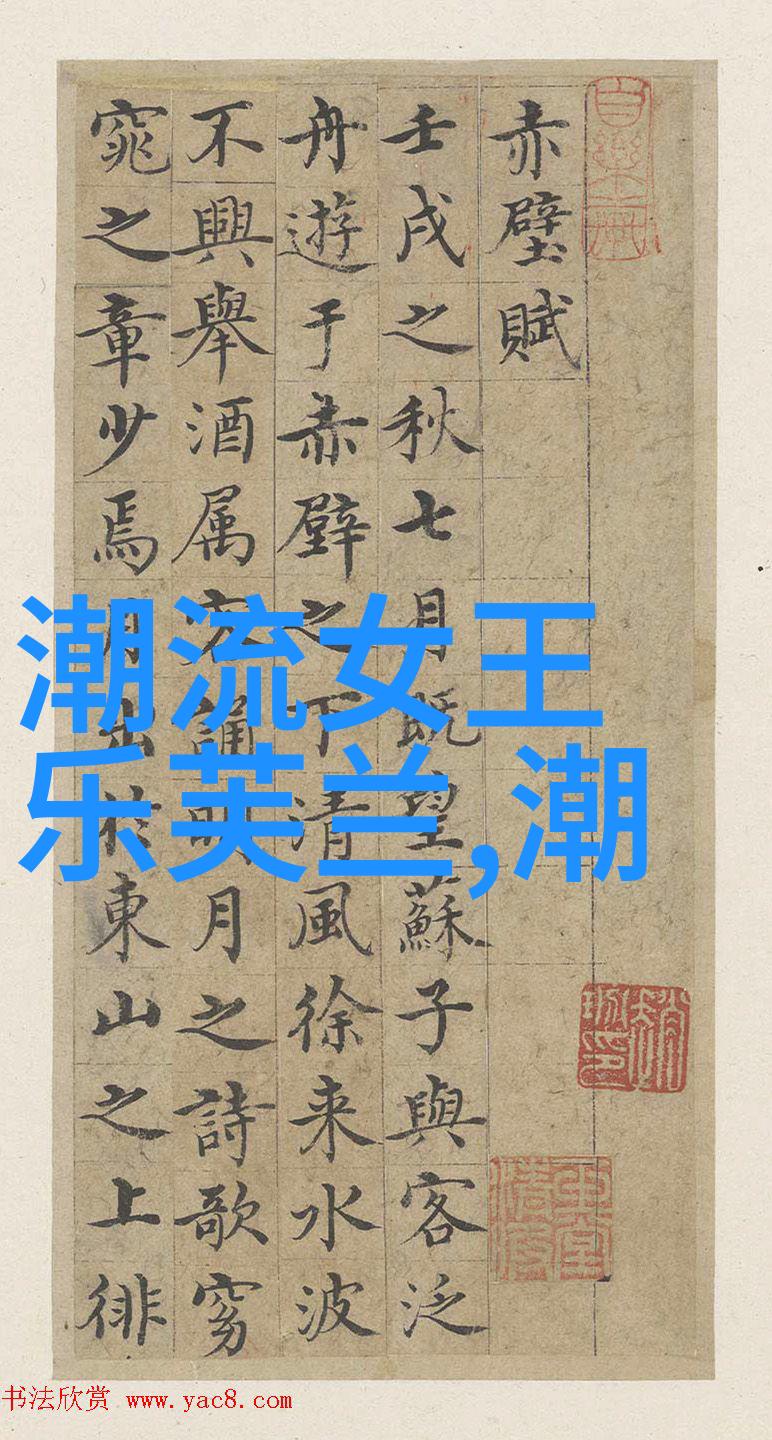 赤壁賦
壬戌之秋七月既望蘇子與客泛
舟遊于赤壁之下清風徐来水波
不興舉酒属客誦明月之詩歌窈
窕之章少焉月出於東山之上徘
潮流女王
乐芙兰,潮
书法欣赏 www.yac8.com